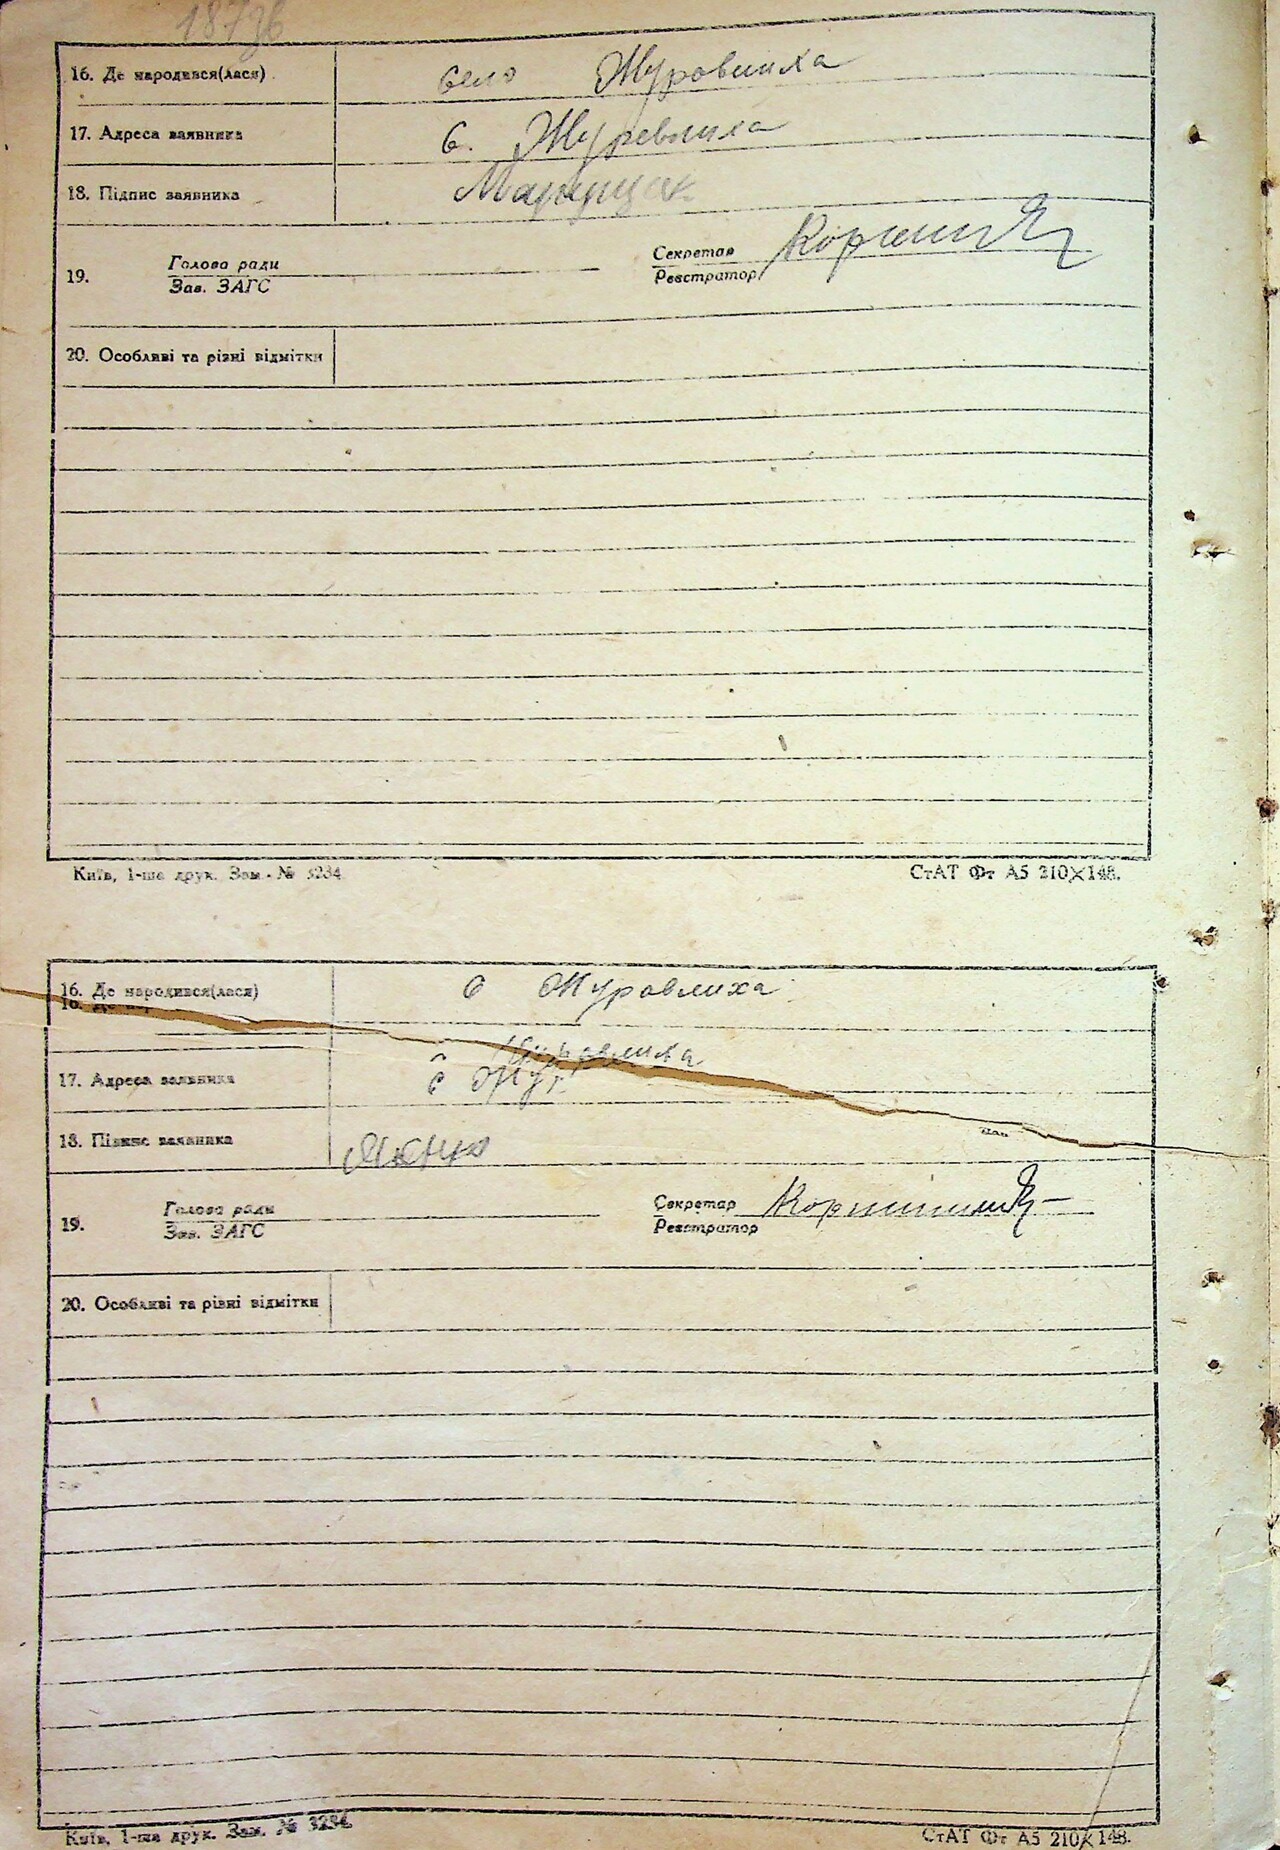 16. Де народився(лася) село Журовлиха
17. Адреса заявника с. Журевлиха
18. Підпис заявника
19. Голова ради Секретар
Зав. ЗАГС Реєстратор
20. Особливі та різні відмітки
Київ, 1-ша друк. Зам. № 3234 СтАТ Фт А5 210×148.
16. Де народився(лася) с Журовлиха
17. Адреса заявника с Журовлиха
18. Підпис заявника
19. Голова ради Секретар
Зав. ЗАГС Реєстратор
20. Особливі та різні відмітки
Київ, 1-ша друк. Зам. № 3234. СтАТ Фт А5 210×148.